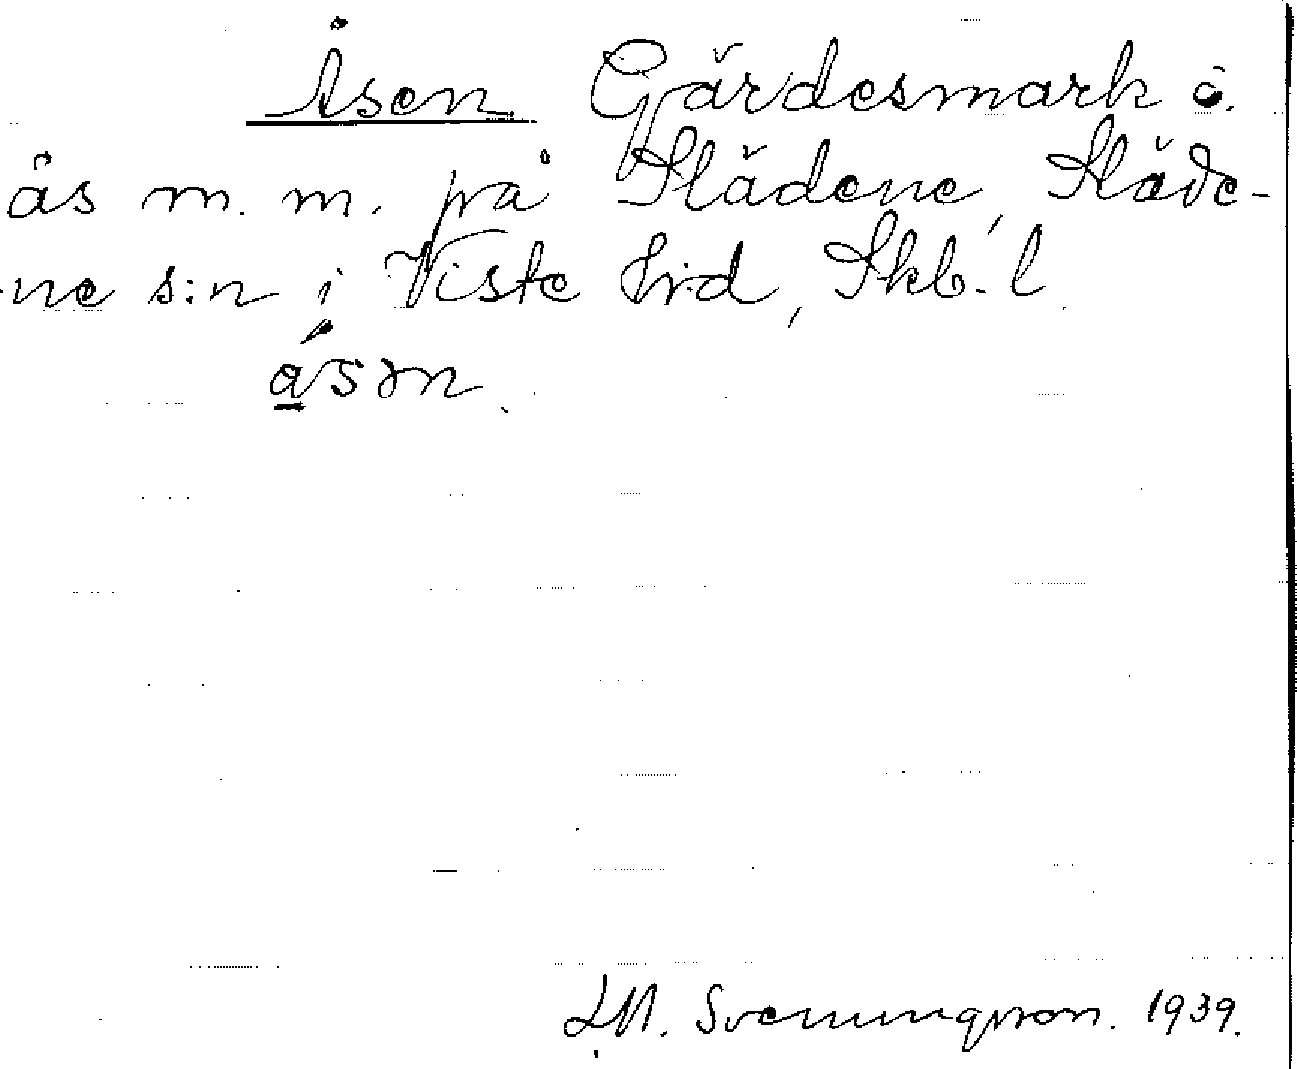 Åsen Gärdesmark å.
ås m.m. på Slädene, Släde-
ne s:n i Viste hrd, Skb. l.
ásm.
L.M. Svenungsson. 1939.